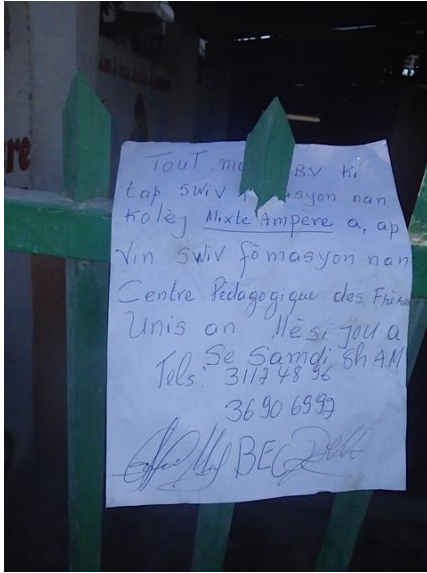 Tout BV ki
tap swiv nan
Kolèj Mixte Ampere a, ap
Vin swiv fòmasyon nan
Centre Pédagogique des Frères
Unis an Mèsi jou a
Se Samdi 8h A.M
Tels: 3117 48 96
3690 6992
BEC